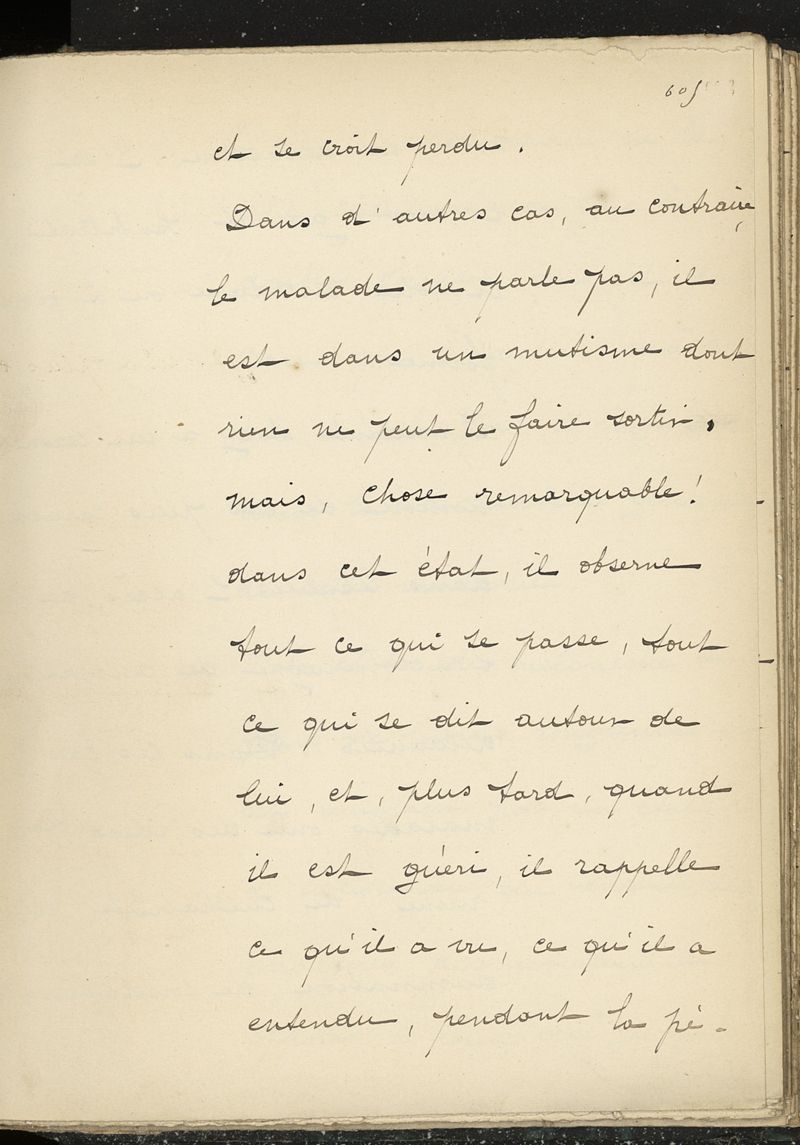 605
et se croit perdu.
Dans d'autres cas, au contraire,
le malade ne parle pas, il
est dans un mutisme dont
rien ne peut le faire sortir,
mais, chose remarquable!
dans cet état, il observe
tout ce qui se passe, tout
ce qui se dit autour de
lui, et, plus tard, quand
il est guéri, il rappelle
ce qu'il a vu, ce qu'il a
entendu, pendant la pé-